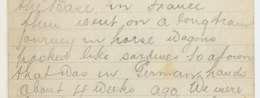 the Base in France
then went on a long train
journey in horse wagons
packed like sardines to a town
that was in German hands
about 4 weeks ago. We were